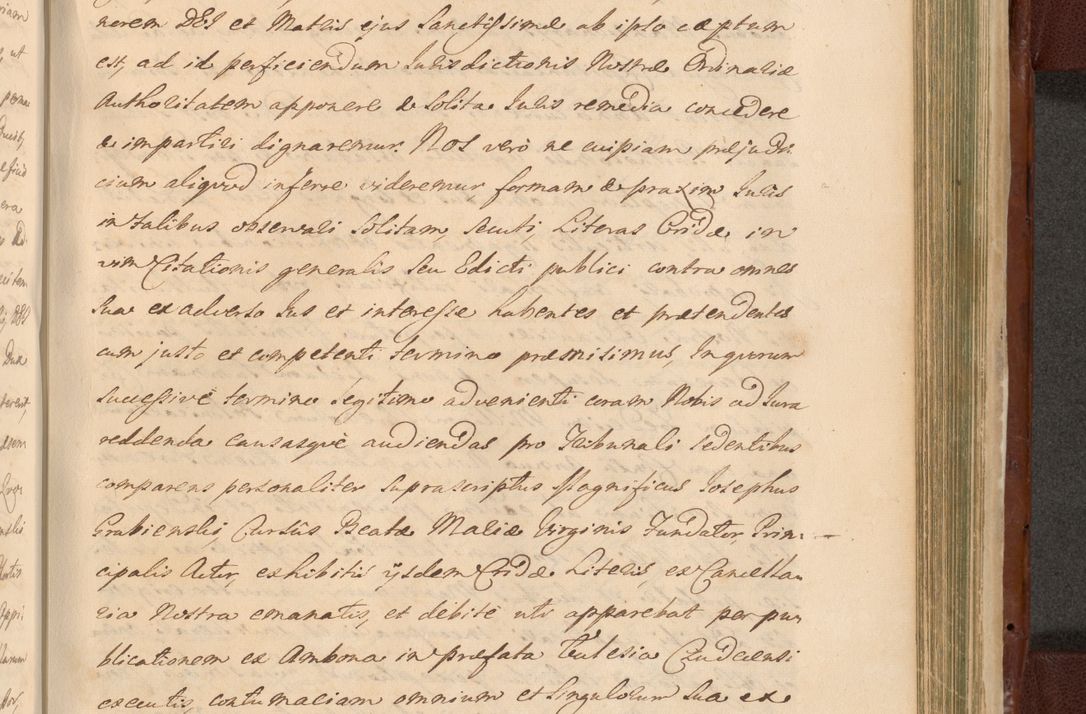 norem DEI et Matris ejus Sanctissimæ ab ipso cæptum
est, ad id perficiendum Iurisdictionis Nostræ Ordinariæ
Authoritatem apponere & solita Iuris remedia concedere
& impartiri dignaremur. NOS verò ne cuipiam præjudi
cium aliquod inferre videremur formam & praxim Iuris
in talibus observari solitam, secuti, Literas Cridæ in
vim Citationis generalis seu Edicti publici contra omnes
sua ex adverso Ius et interesse habentes et prætendentes
cum justo et competenti termino præmisimus, In quorum
successivè termino legitimo advenienti coram Nobis ad Iura
reddenda causasque audiendas pro Tribunali sedentibus
comparens personaliter suprascriptus Magnificus Iosephus
Grabienski, Cursûs Beatæ Mariæ Virginis Fundator, Prin-
cipalis Actor, exhibitis ijsdem Cridæ Literis, ex Cancella
ria Nostra emanatis, et debitè uti apparebat per pu
blicationem ex Ambona in præfata Ecclesia Czudecensi
executis, contumaciam omnium et singulorum sua ex